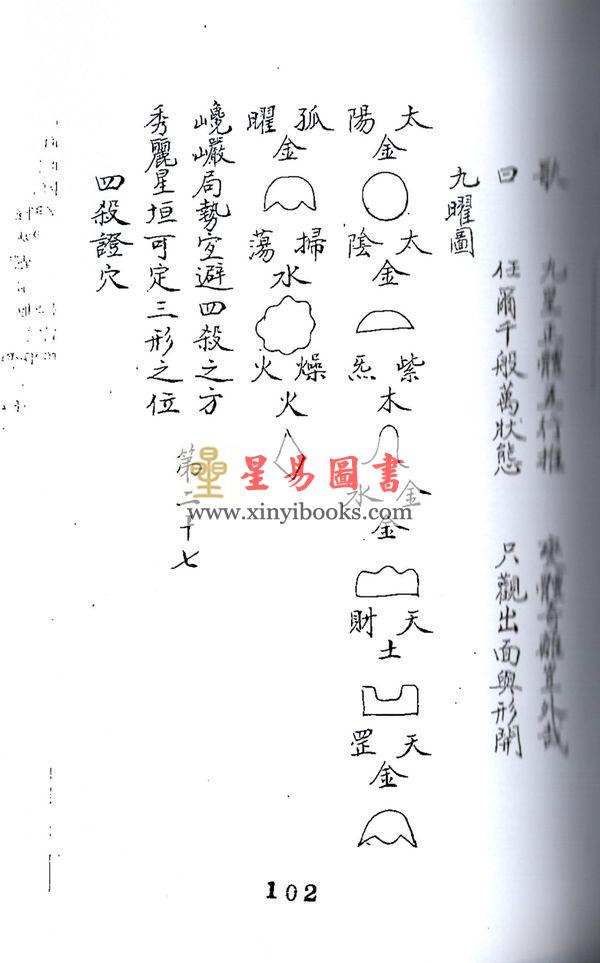 歌 九星正體五行推 變體奇離豈外哉
曰 任爾千般萬狀態 只觀出面與形開
九曜圖
太陽金 太陰金 紫炁木 金水金 天財土 天罡金
孤曜金 掃蕩水 燥火火
巉巖局勢宜避四殺之方
秀麗星垣可定三形之位
四殺證穴 第二十七
星 星易圖書
www.xinyibooks.com
102